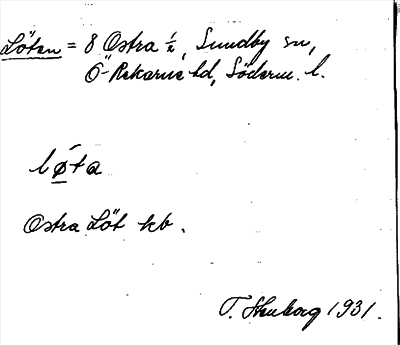 Löten = 8 Östra ½, Sundby sn,
Ö-Rekarne hd, Söderm. l.
lǿta
Östra Löt kb.
T. 1931.